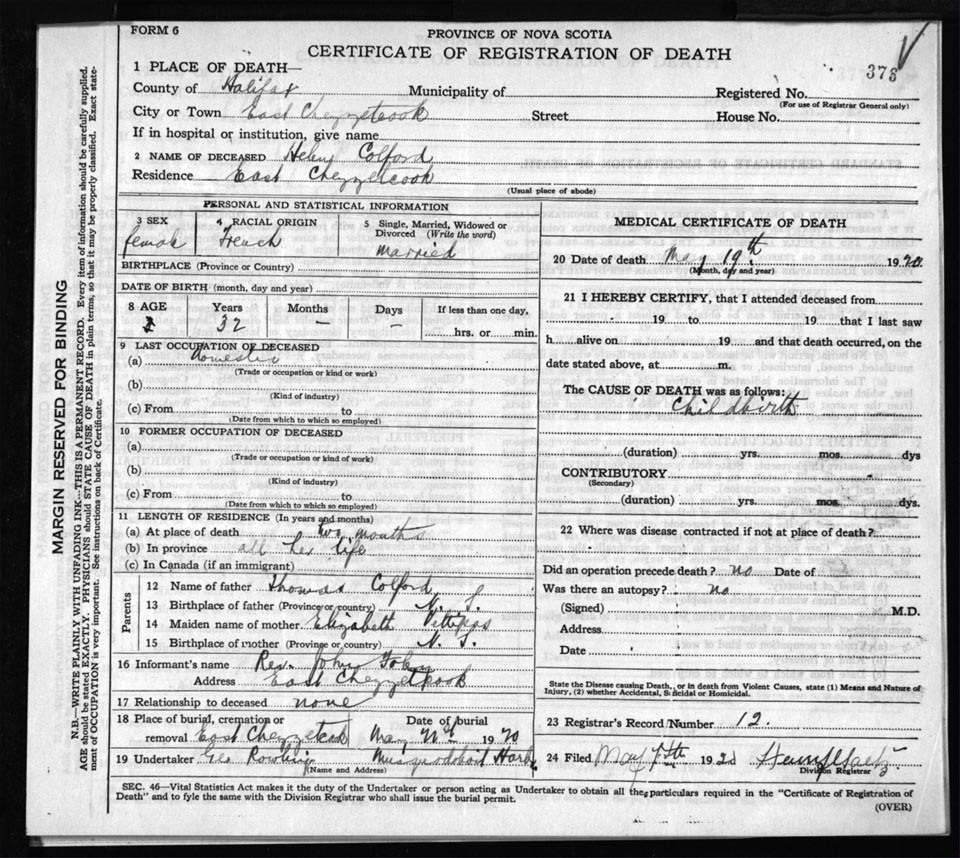 FORM 6
PROVINCE OF NOVA SCOTIA
CERTIFICATE OF REGISTRATION OF DEATH
373
1 PLACE OF DEATH—
County of Halifax Municipality of Registered No.
(For use of Registrar General only)
City or Town East Chezzetcook Street House No.
If in hospital or institution, give name
2 NAME OF DECEASED Helen Colford
Residence East Chezzetcook
(Usual place of abode)
PERSONAL AND STATISTICAL INFORMATION
3 SEX female
4 RACIAL ORIGIN French
5 Single, Married, Widowed or Divorced (Write the word) married
BIRTHPLACE (Province or Country)
DATE OF BIRTH (month, day and year)
8 AGE Years Months Days If less than one day,
32 — — hrs. or min.
9 LAST OCCUPATION OF DECEASED
(a) domestic
(Trade or occupation or kind or work)
(b)
(Kind of industry)
(c) From to
(Date from which to which so employed)
10 FORMER OCCUPATION OF DECEASED
(a)
(Trade or occupation or kind of work)
(b)
(Kind of industry)
(c) From to
(Date from which to which so employed)
11 LENGTH OF RESIDENCE (In years and months)
(a) At place of death two months
(b) In province all her life
(c) In Canada (if an immigrant)
Parents
12 Name of father Thomas Colford
13 Birthplace of father (Province or country) N. S.
14 Maiden name of mother Elizabeth
15 Birthplace of mother (Province or country) N. S.
16 Informant's name Rev. John
Address East Chezzetcook
17 Relationship to deceased none
18 Place of burial, cremation or Date of burial
removal East Chezzetcook May 1920
19 Undertaker Geo Musquodoboit Harb
(Name and Address)
MEDICAL CERTIFICATE OF DEATH
20 Date of death May 19th 1920
(Month, day and year)
21 I HEREBY CERTIFY, that I attended deceased from
19 to 19 that I last saw
h alive on 19 and that death occurred, on the
date stated above, at m.
The CAUSE OF DEATH was as follows:
Childbirth
(duration) yrs. mos. dys
CONTRIBUTORY
(Secondary)
(duration) yrs. mos. dys.
22 Where was disease contracted if not at place of death?
Did an operation precede death? no Date of
Was there an autopsy? no
(Signed) M.D.
Address
Date
State the Disease causing Death, or in death from Violent Causes, state (1) Means and Nature of
Injury, (2) whether Accidental, Suicidal or Homicidal.
23 Registrar's Record Number 12.
24 Filed May 192
Division Registrar
SEC. 46—Vital Statistics Act makes it the duty of the Undertaker or person acting as Undertaker to obtain all the particulars required in the "Certificate of Registration of
Death" and to fyle the same with the Division Registrar who shall issue the burial permit.
(OVER)
MARGIN RESERVED FOR BINDING
N.B.—WRITE PLAINLY WITH UNFADING INK—THIS IS A PERMANENT RECORD. Every item of information should be carefully supplied.
AGE should be stated EXACTLY. PHYSICIANS should STATE CAUSE OF DEATH in plain terms, so that it may be properly classified. Exact state-
ment of OCCUPATION is very important. See instructions on back of Certificate.